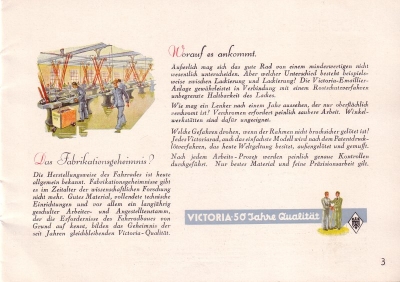 Worauf es ankommt.
Äußerlich mag sich das gute Rad von einem minderwertigen nicht
wesentlich unterscheiden. Aber welcher Unterschied besteht beispiels-
weise zwischen Lackierung und Lackierung? Die Victoria-Emaillier-
Anlage gewährleistet in Verbindung mit einem Rostschutzverfahren
unbegrenzte Haltbarkeit des Lackes.
Wie mag ein Lenker nach einem Jahr aussehen, der nur oberflächlich
verchromt ist? Verchromen erfordert peinlich saubere Arbeit. Winkel-
werkstätten sind dafür ungeeignet.
Welche Gefahren drohen, wenn der Rahmen nicht bruchsicher gelötet ist?
Jedes Victoriarad, auch das einfachste Modell wird nach dem Patentdruck-
lötverfahren, das heute Weltgeltung besitzt, außengelötet und gemufft.
Nach jedem Arbeits-Prozeß werden peinlich genaue Kontrollen
durchgeführt. Nur bestes Material und feine Präzisionsarbeit gilt.
Das Fabrikationsgeheimnis?
Die Herstellungsweise des Fahrrades ist heute
allgemein bekannt. Fabrikationsgeheimnisse gibt
es im Zeitalter der wissenschaftlichen Forschung
nicht mehr. Gutes Material, vollendete technische
Einrichtungen und vor allem ein langjährig
geschulter Arbeiter- und Angestelltenstamm,
der die Erfordernisse des Fahrradbaues von
Grund auf kennt, bilden das Geheimnis der
seit Jahren gleichbleibenden Victoria-Qualität.
VICTORIA-50 Jahre Qualität
3